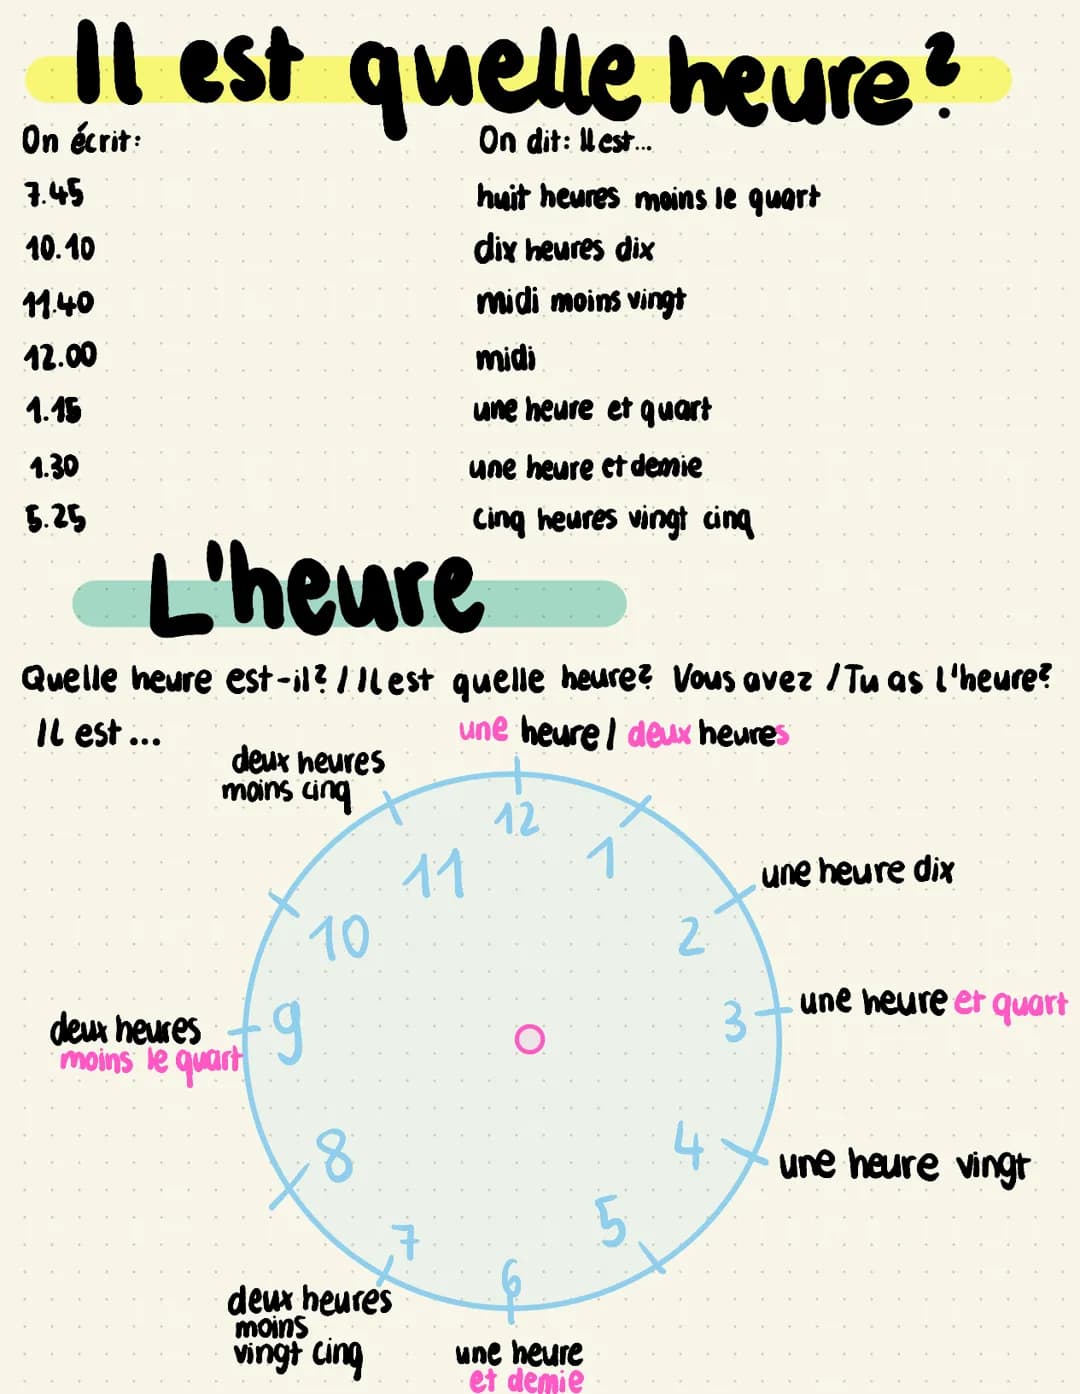 Il est quelle heure?
On écrit:
On dit: Il est...
7.45
huit heures moins le quart
10.10
dix heures dix
11.40
midi moins vingt
12.00
midi
1.15
une heure et quart
1.30
une heure et demie
5.25
cinq heures vingt cinq
L'heure
Quelle heure est-il? / Il est quelle heure? Vous avez / Tu as l'heure?
Il est...
une heure / deux heures
deux heures
moins cinq
12
11
1
une heure dix
10
2
une heure et quart
deux heures
moins le quart
9
3
8
4
une heure vingt
7
5
6
deux heures
moins
vingt cinq
une heure
et demie